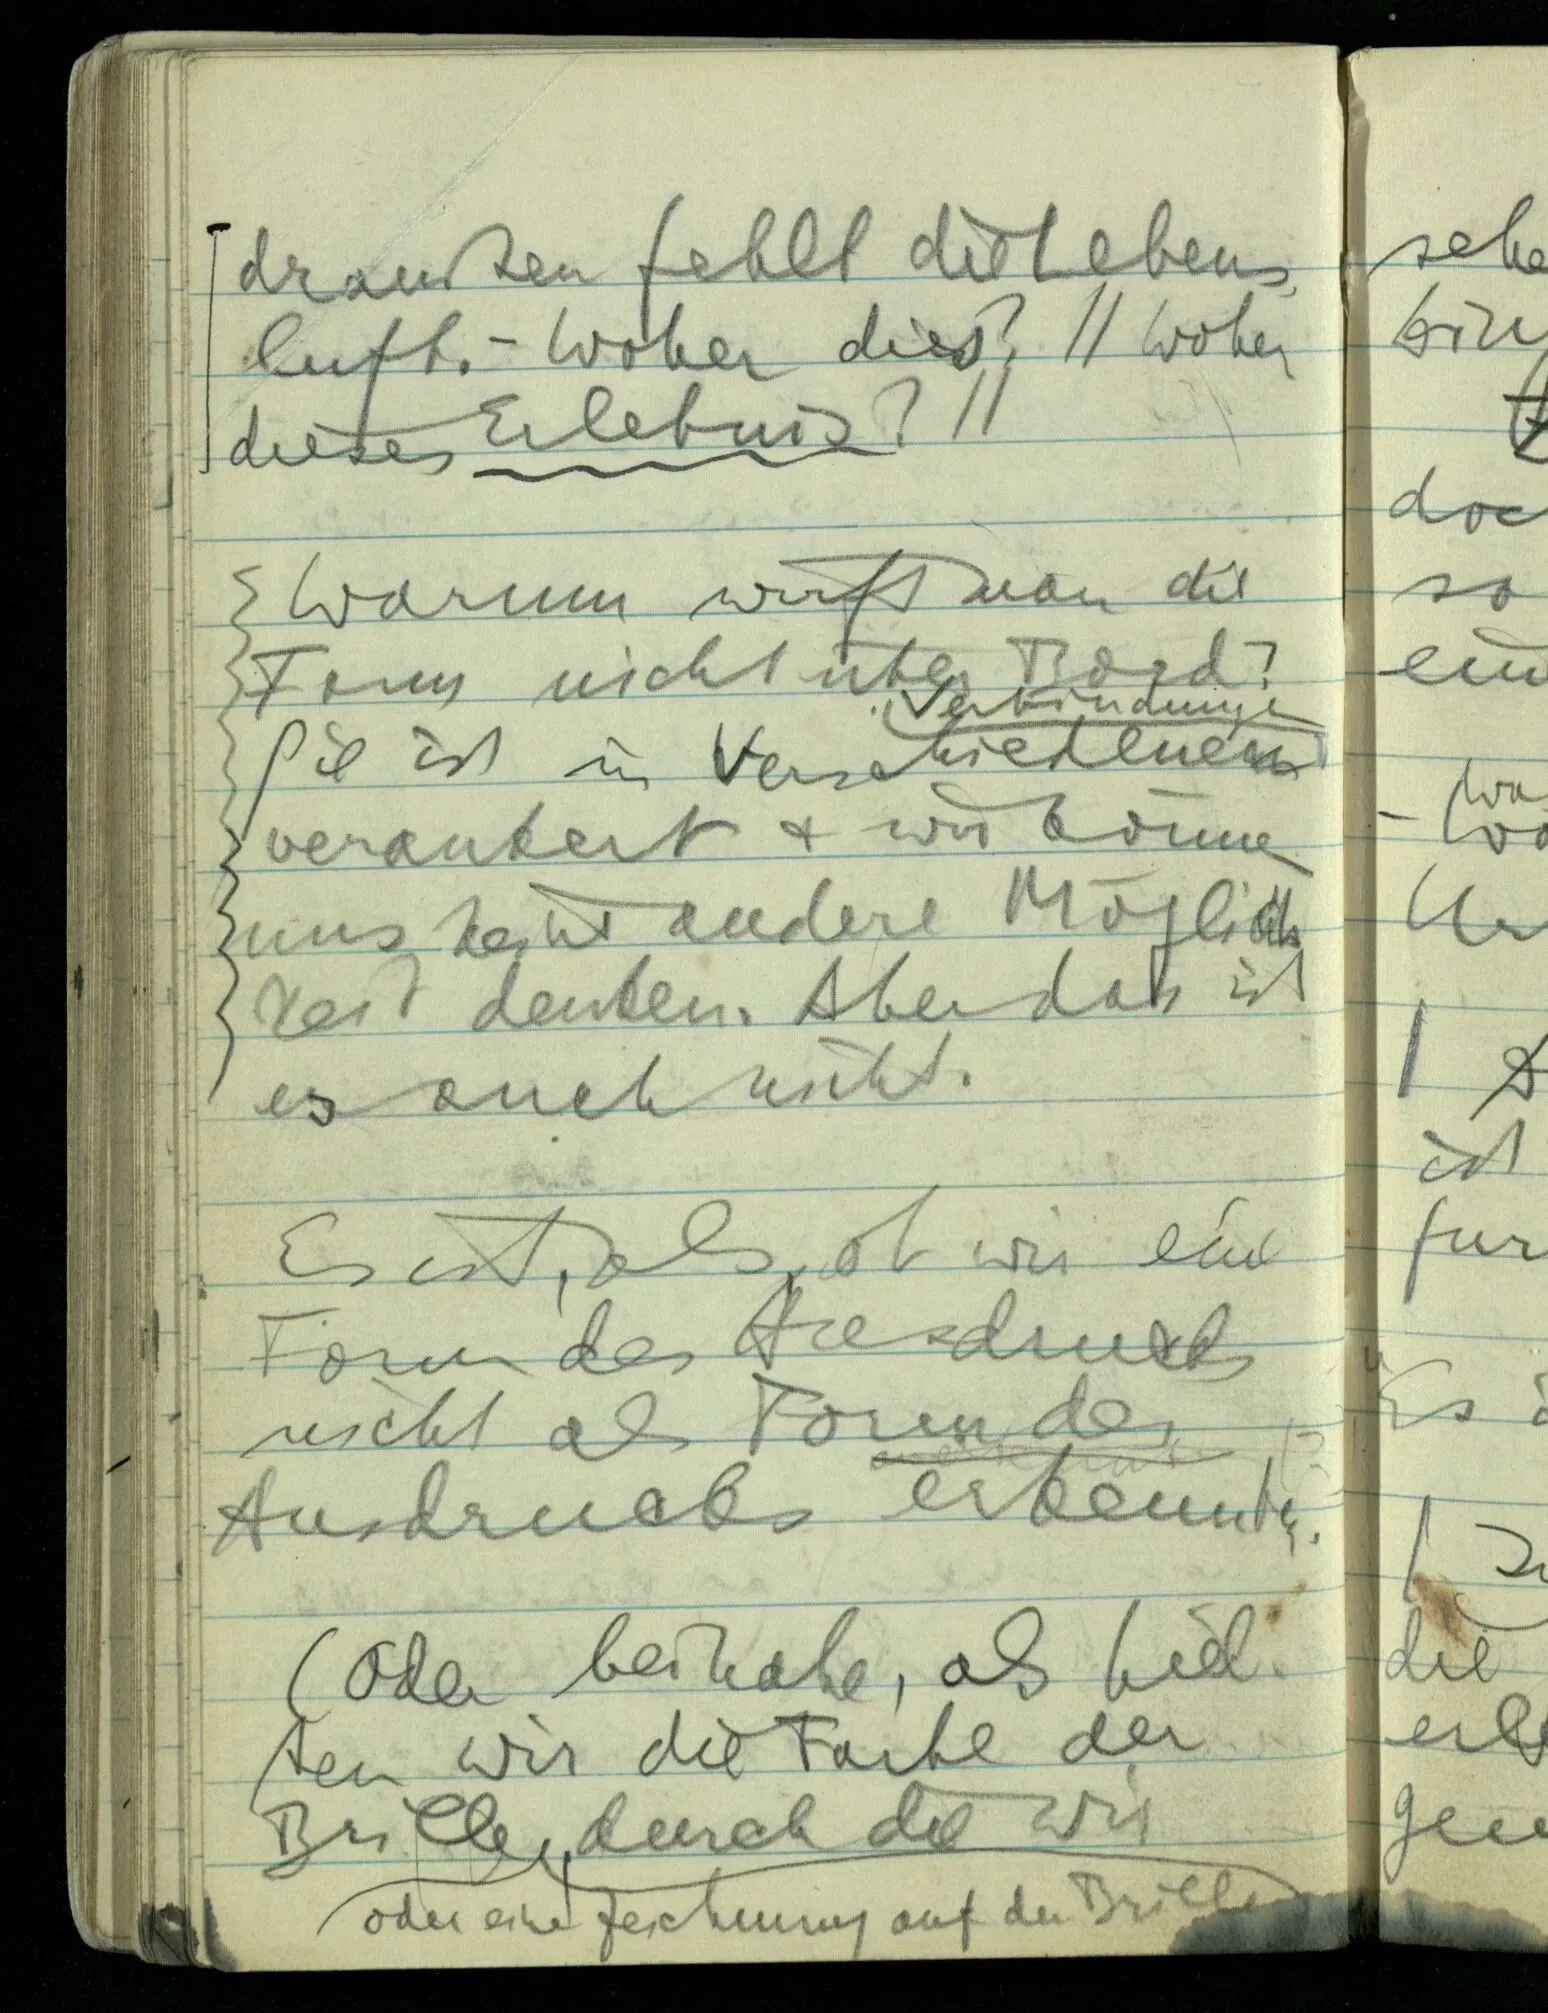 draußen fehlt die Lebens-
luft. – Woher dies? // Woher
dieses Erlebnis? //
Warum wirft man die
Form nicht über Bord?
Verbindungen
Sie ist in Verschiedenem
verankert & wir könne
uns keine andere Möglich
keit denken. Aber das ist
es auch nicht.
Es ist, als ob wir eine
Form des Ausdrucks
nicht als Form des
Ausdrucks erkennten.
(Oder beinahe, als hiel-
ten wir die Farbe der
Brille, durch die wir
oder eine Zeichnung auf der Brille
sehe
doc
so
ist
fur
Es
die